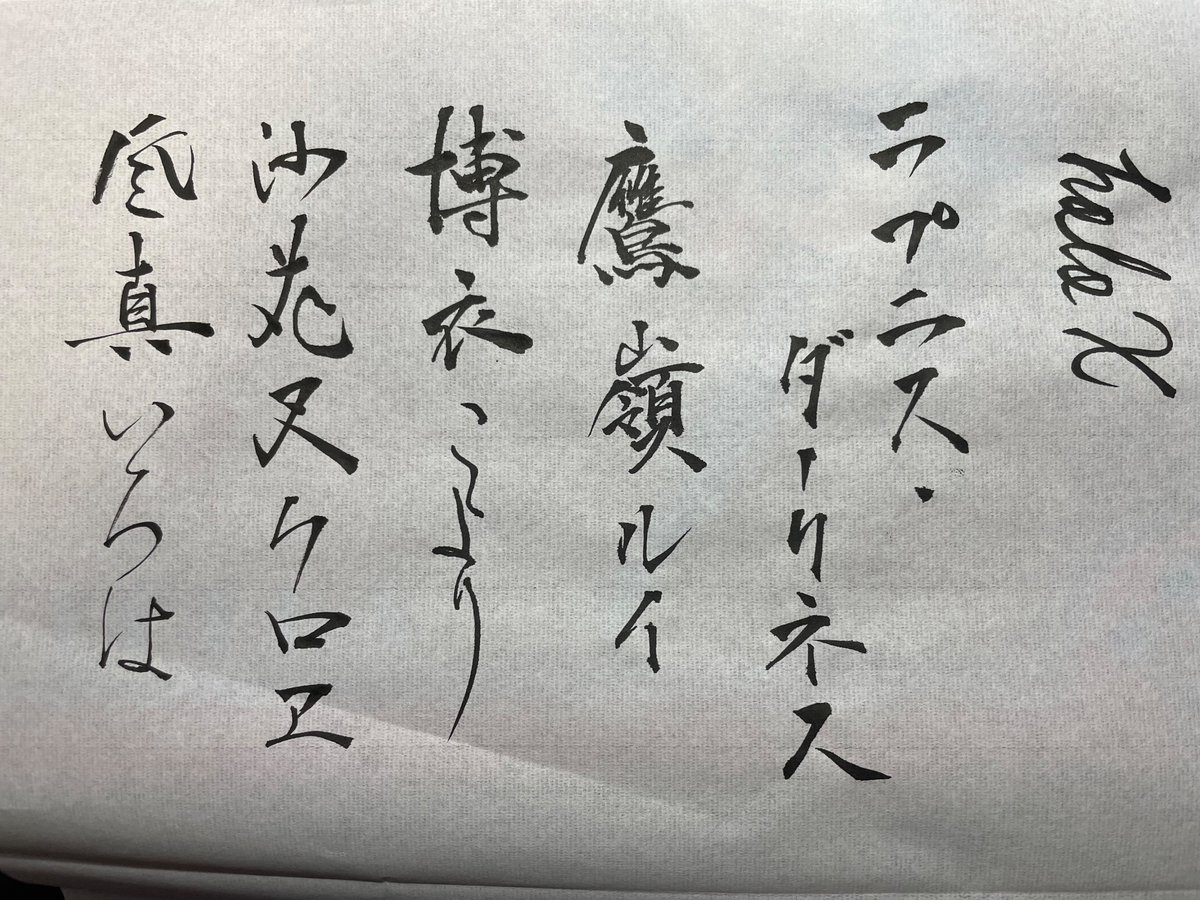 holoX
ラプラス・
ダークネス
鷹嶺ルイ
博衣こより
沙花叉クロヱ
風真いろは